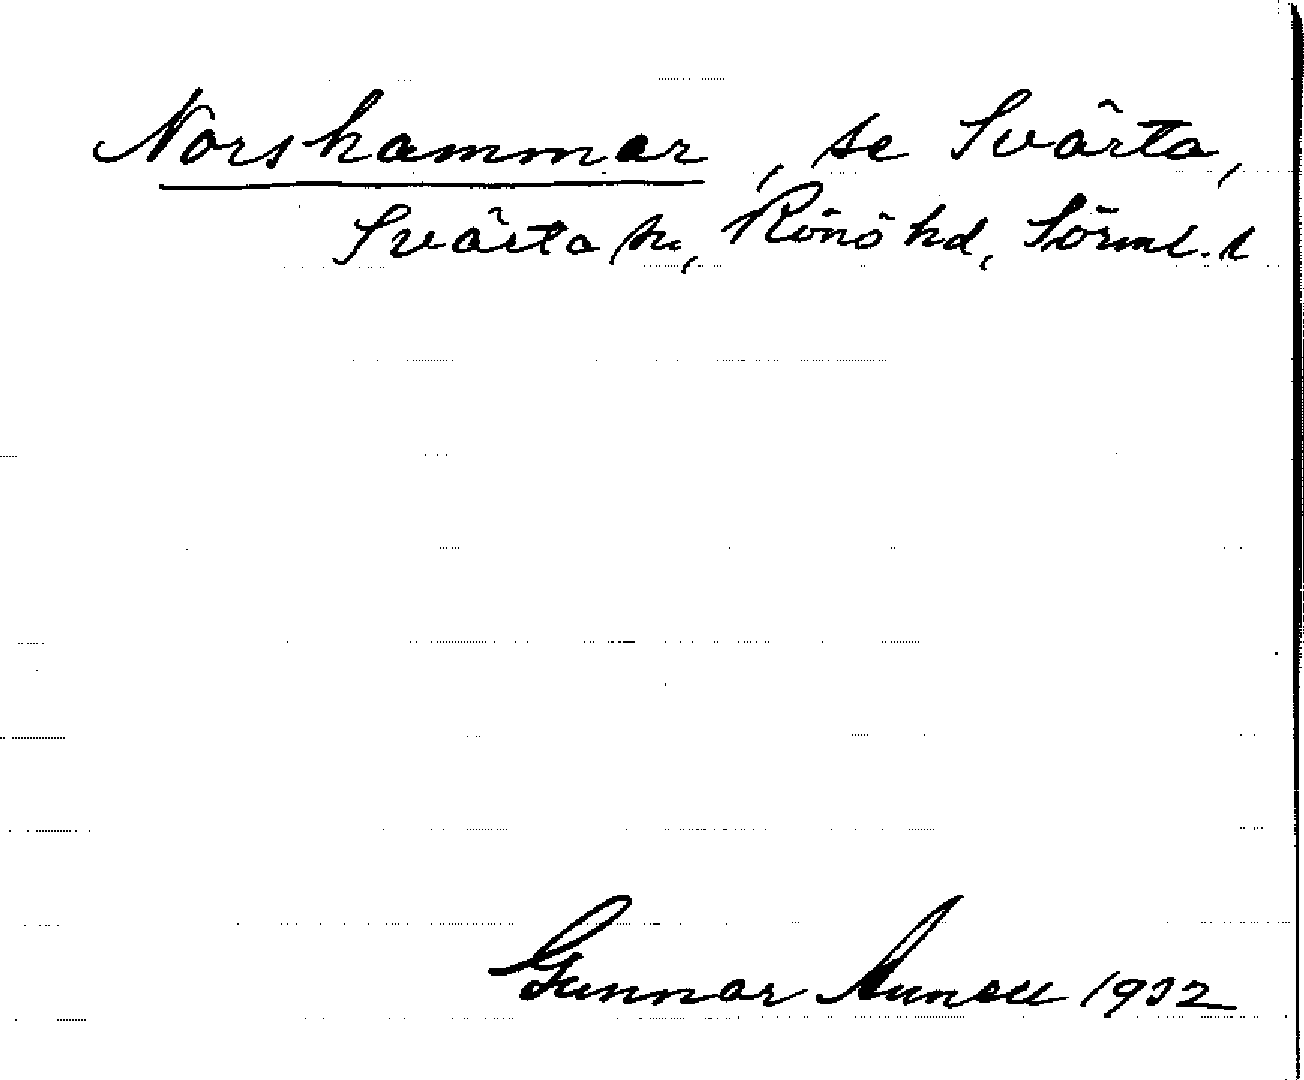 Norshammar, se Svärta,
Svärta sn, Rönö hd, Sörml. l
Gunnar 1932